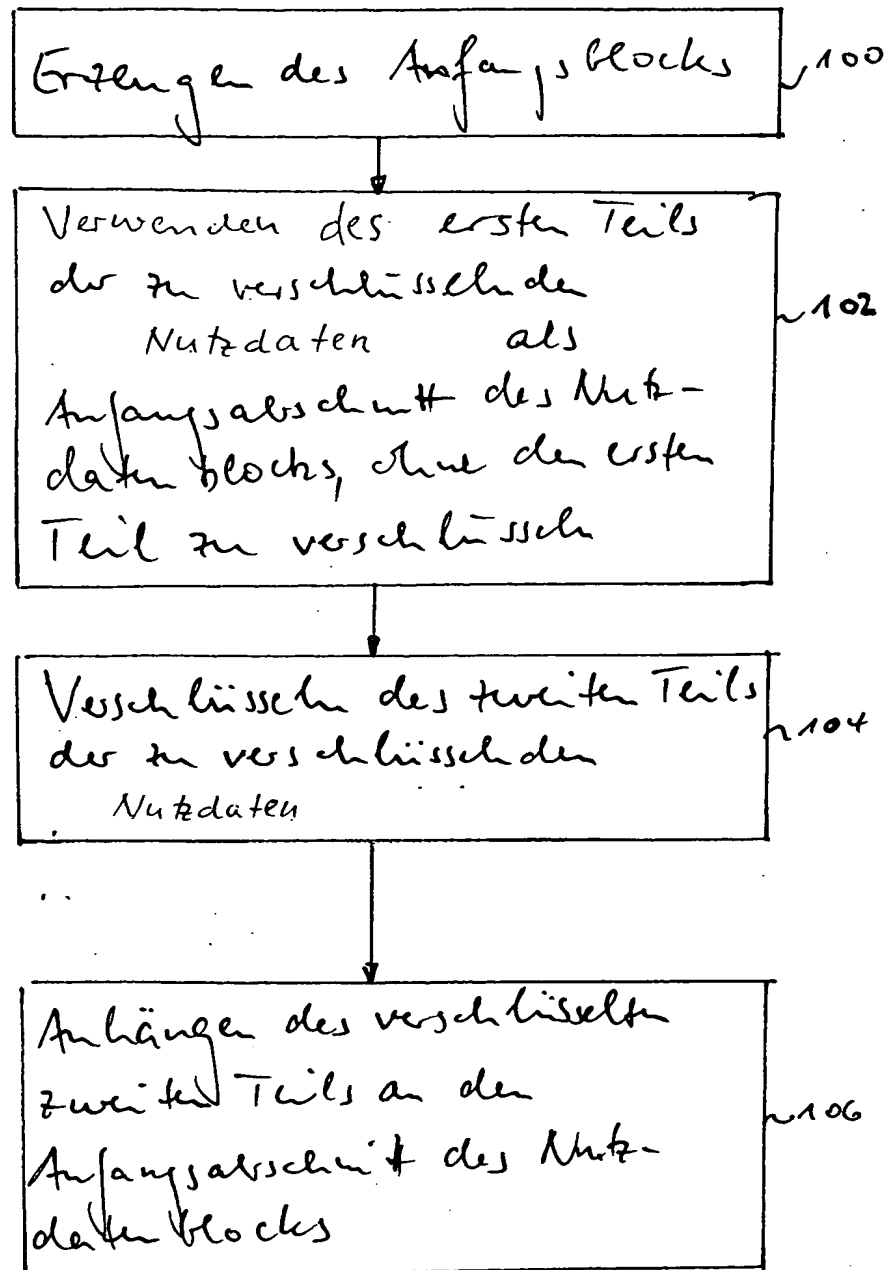 Erzeugen des Anfangsblocks
100
Verwenden des ersten Teils
der zu verschlüsselnden
Nutzdaten als
Anfangsabschnitt des Nutz-
datenblocks, ohne den ersten
Teil zu verschlüsseln
102
Verschlüsseln des zweiten Teils
der zu verschlüsselnden
Nutzdaten
104
Anhängen des verschlüsselten
zweiten Teils an den
Anfangsabschnitt des Nutz-
datenblocks
106